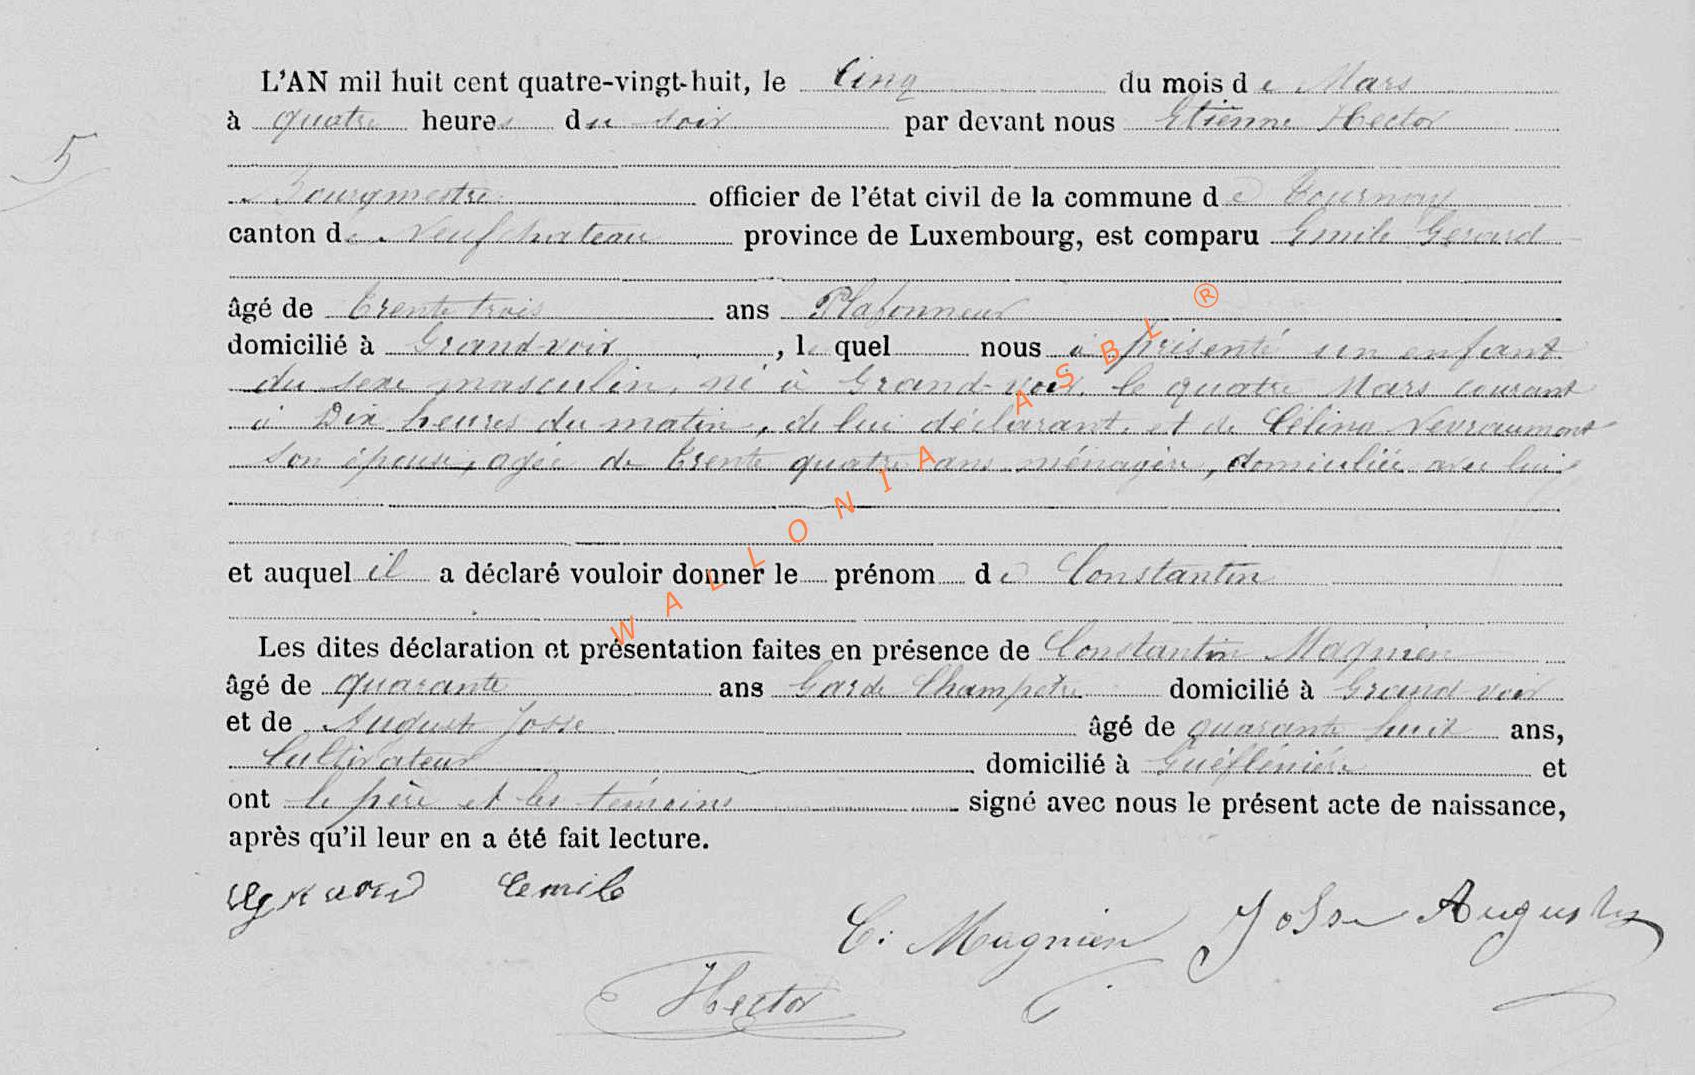 L'AN mil huit cent quatre-vingt-huit, le Cinq du mois de Mars
à quatre heures du soir par devant nous Etienne Hector
5
Bourgmestre officier de l'état civil de la commune de Tournay
canton de Neufchateau province de Luxembourg, est comparu Emile Gerard
âgé de Trente trois ans Plafonneur
domicilié à Grand-voir, le quel nous a présenté un enfant
du sexe masculin, né à Grand-voir, le quatre Mars courant
à Dix heures du matin, de lui déclarant et de Célina Nevraumont
son épouse, agée de Trente quatre ans ménagère, domiciliée avec lui
et auquel il a déclaré vouloir donner le prénom de Constantin
Les dites déclaration et présentation faites en présence de Constantin Magnien
âgé de quarante ans Garde Champetre domicilié à Grand voir
et de Auguste Josse âgé de quarante huit ans,
Cultivateur domicilié à et
ont le père et les témoins signé avec nous le présent acte de naissance,
après qu'il leur en a été fait lecture.
Emile
C. Magnien Josse Auguste
Hector
WALLONIA ASBL ®